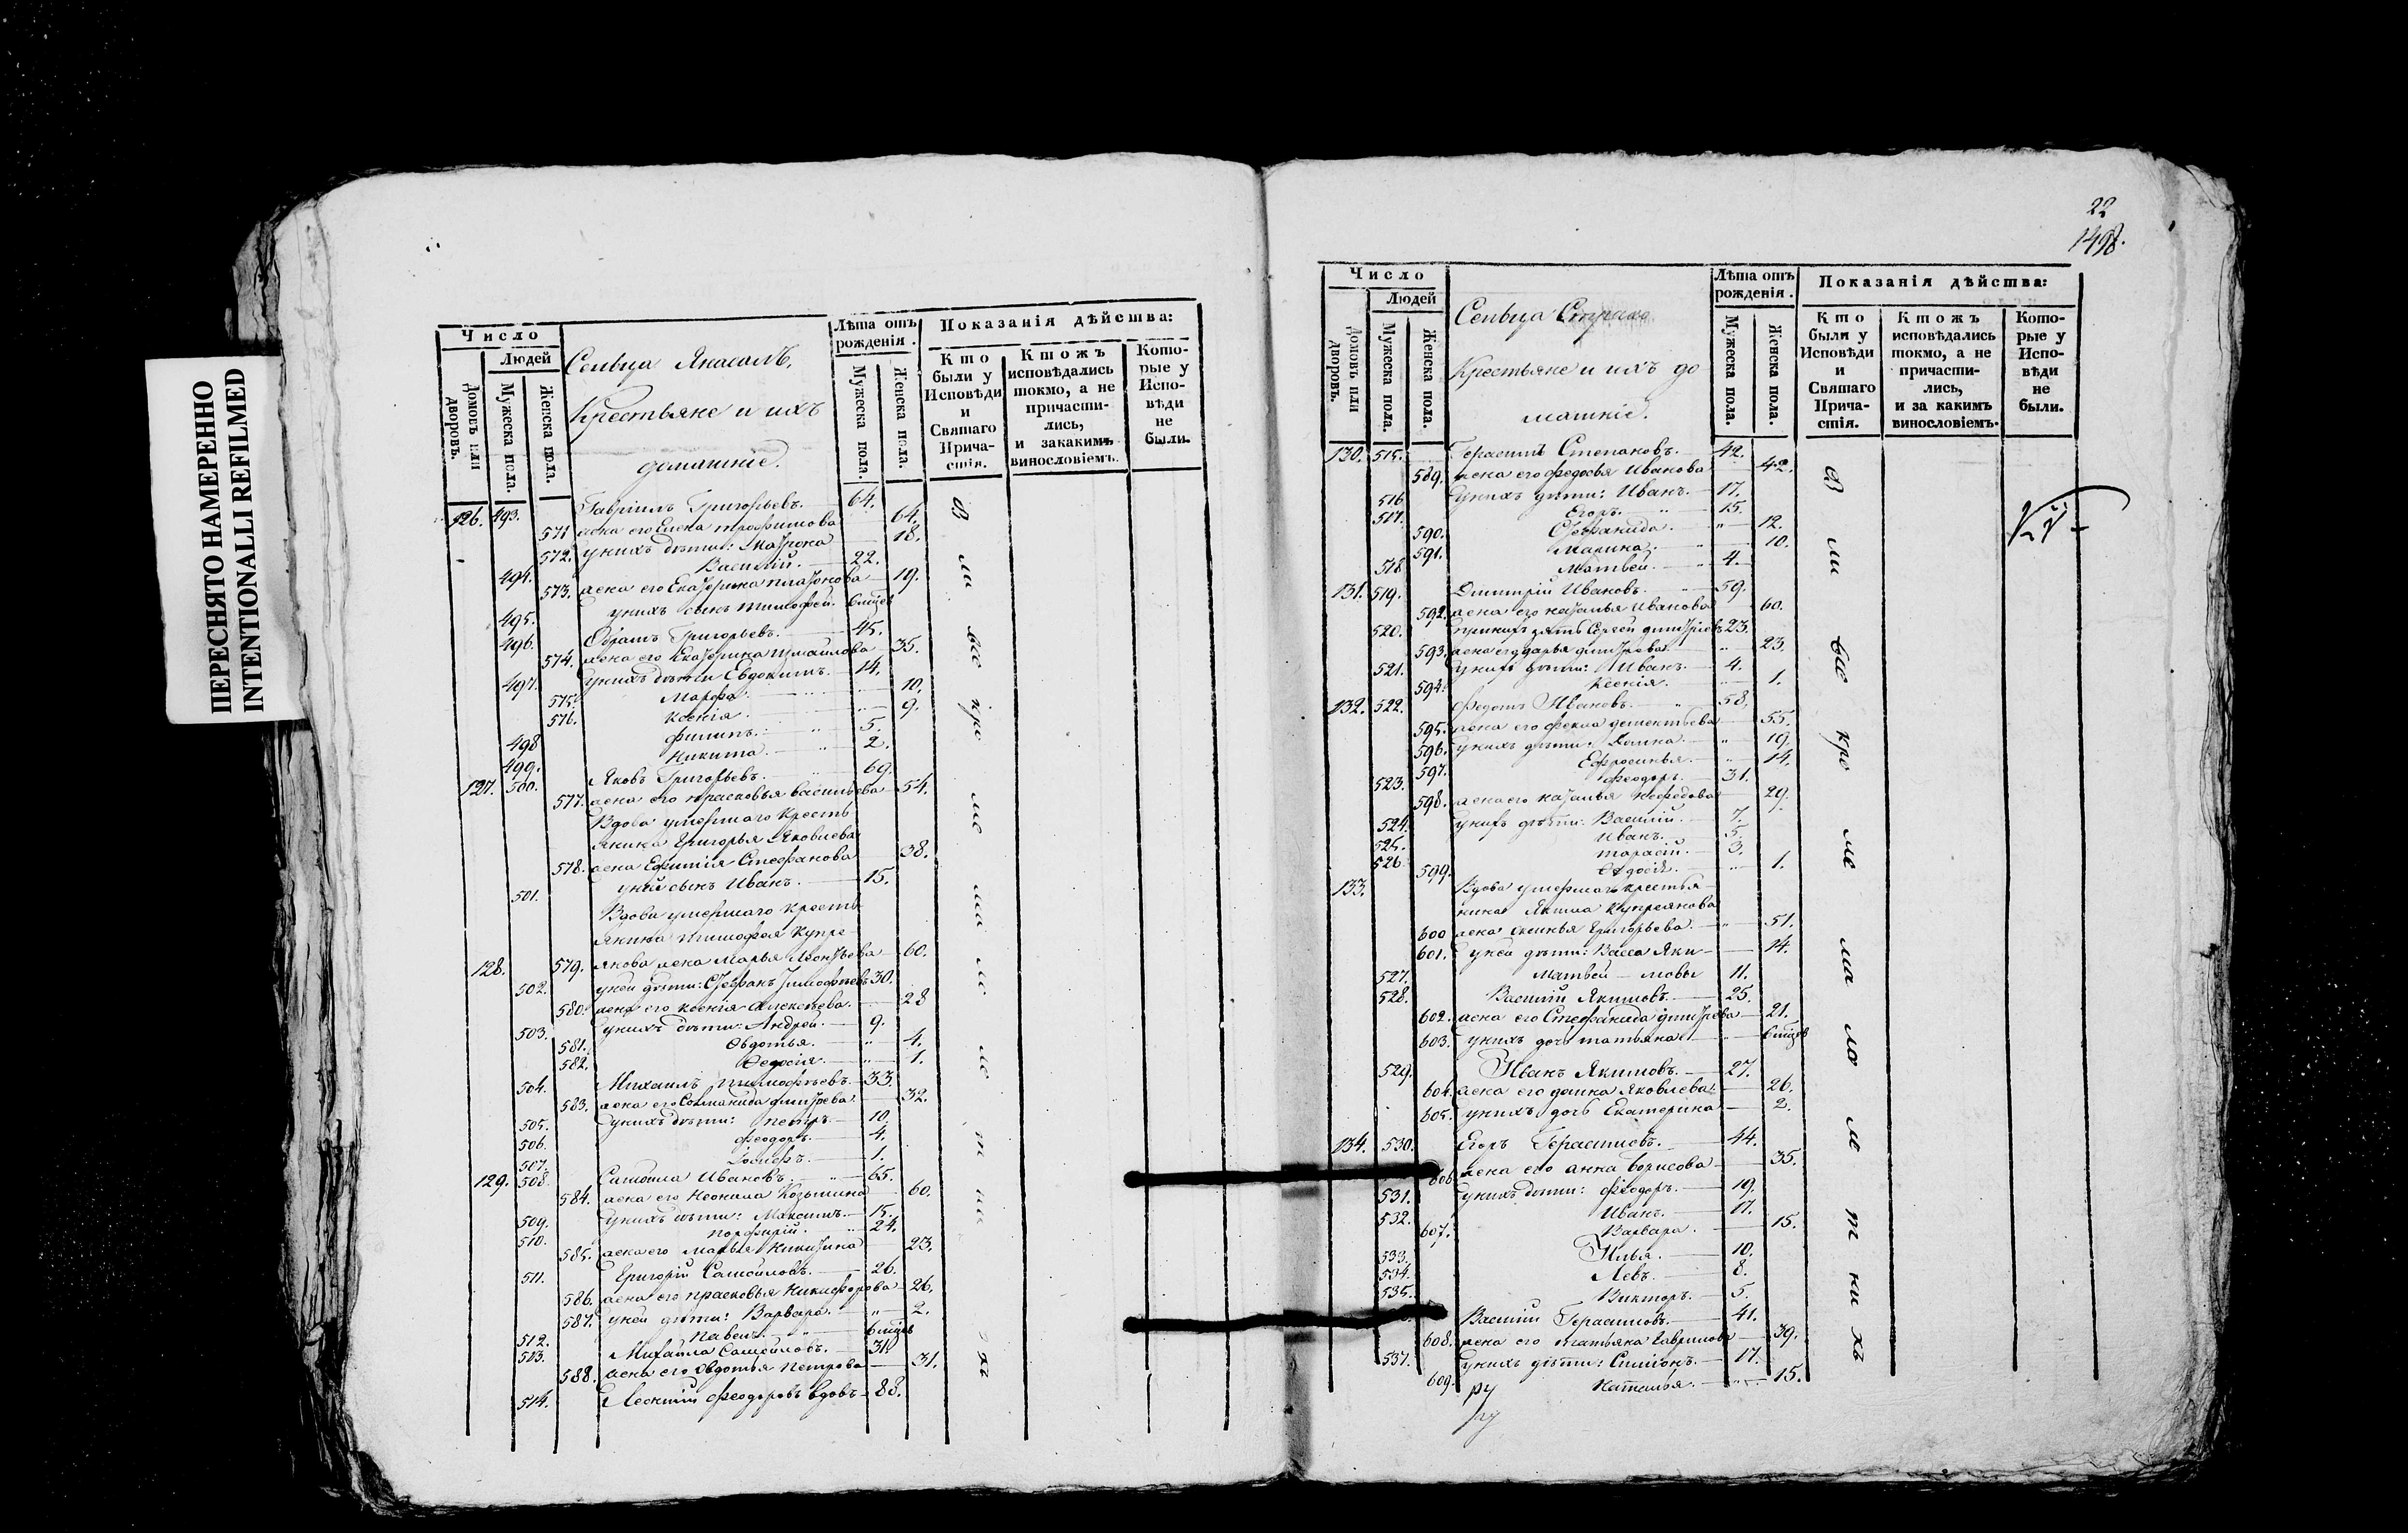 ПЕРЕСНЯТО НАМЕРЕННО
INTENTIONALLI REFILMED
Число
Людей
Домовъ или дворовъ.
Мужеска пола.
Женска пола.
Сельца
Крестьяне и ихъ
домашніе.
Лѣта отъ рожденія.
Мужеска пола.
Женска пола.
Показанія дѣйства:
Кто были у Исповѣди и Святаго Причастія.
Ктожъ исповѣдались токмо, а не причастились, и закакимъ винословіемъ.
Которые у Исповѣди не были.
126. 493. Гавріилъ Григорьевъ. 64.
571 жена его Елена Трофимова 64.
572. у нихъ дѣти: Матрона 18.
494. Василий. 22.
573. жена его Екатерина Платонова 19.
495. у нихъ сынъ Тимофей. 6 мцев
496. Григорьевъ. 45.
574. жена его Екатерина Измайлова 35.
497. у нихъ дѣти Евдокимъ. 14.
575. Марфа. 10.
576. Ксенія. 9.
498 Филипъ. 5.
499. Никита. 2.
127. 500. Яковъ Григорьевъ. 69.
577. жена его Прасковья Васильева 54.
Вдова умершаго кресть
янина Григорья Яковлева
578. жена Ефимія Стефанова 38.
501. у ней сынъ Иванъ. 15.
Вдова умершаго кресть
янина Тимофея Купре-
128. 579. янова жена Марья Леонтьева 60.
502. у ней дѣти: Стефанъ Тимофеевъ 30.
580. жена его Ксенія Алексѣева. 28
503. у нихъ дѣти: Андрей. 9.
581. Овдотья. 4.
582. Федосія. 1.
504. Михаилъ Тимофѣевъ. 33.
583. жена его Соломанида Дмитрева 32.
505. у нихъ дѣти: Петръ. 10.
506. Феодоръ. 4.
507. Іосифъ. 1.
129. 508. Самойла Ивановъ. 65.
584. жена его Неонила Козьмина 60.
509. у нихъ дѣти: Максимъ. 15.
510. Порфирій. 24.
585. жена его Марья Никитина 23.
511. Григорій Самойловъ. 26.
586. жена его Прасковья Никифорова 26.
587. у ней дѣти: Варвара. 2.
512. Павелъ. 6 мцев
513. Михайла Самойловъ. 31.
588. жена его Овдотья Петрова 31.
514. Леонтий Феодоровъ вдовъ 88.
В
сѣ
22
1498.
Число
Людей
Домовъ или дворовъ.
Мужеска пола.
Женска пола.
Сельца
Крестьяне и ихъ до
машніе.
Лѣта отъ рожденія.
Мужеска пола.
Женска пола.
Показанія дѣйства:
Кто были у Исповѣди и Святаго Причастія.
Ктожъ исповѣдались токмо, а не причастились, и за какимъ винословіемъ.
Которые у Исповѣди не были.
130. 515. Герасимъ Степановъ. 42.
589. жена его Федосья Иванова 42.
516. у нихъ дѣти: Иванъ. 17.
517. Егоръ. 15.
590. Стефанида. 12.
591. Марина. 10.
518 Матвей. 4.
131. 519. Димитрій Ивановъ. 59.
592. жена его Наталья Иванова 60.
520. при нихъ зять Сергей Дмитріевъ 23.
593. жена его Дарья Дмитрева 23.
521. у нихъ дѣти: Иванъ. 4.
594. Ксенія. 1.
132. 522. Федотъ Ивановъ. 58.
595. жена его Фекла Дементьева 55.
596. у нихъ дѣти: Домна. 19.
597. Ефросинья. 14.
523. Феодоръ. 31.
598. жена его Наталья Нефедова 29.
524. у нихъ дѣти: Василій. 7.
525. Иванъ. 5.
526. Тарасій. 3.
599. 1.
133. Вдова умершаго крестья-
нина Якима Купреянова
600 жена Аксинья Григорьева. 51.
601. у ней дѣти: Васса Яки- 14.
527. Матвей — мовы 11.
528. Василій Якимовъ. 25.
602. жена его Стефанида Дмитрева 21.
603. у нихъ дочь Татьяна 6 мцев
529. Иванъ Якимовъ. 27.
604. жена его Домна Яковлева. 26.
605. у нихъ дочь Екатерина 2.
134. 530. Егоръ Герасимовъ. 44.
606. жена его Анна Борисова 35.
531. у нихъ дѣти: Феодоръ. 19.
532. Иванъ. 17.
607. Варвара. 15.
533. Илья. 10.
534. Левъ. 8.
535. Викторъ. 5.
Василий Герасимовъ. 41.
608. жена его Татьяна Гаврилова 39.
537. у нихъ дѣти: Симіонъ. 17.
609. Наталья. 15.